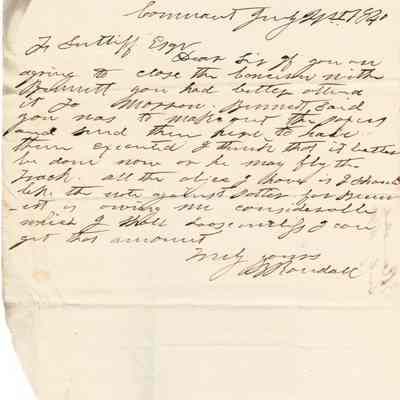 Conneaut July 21st 18
F Sutliff Esqr
Dear Sir If you are
agoing to close the Concern with
Bennett you had better attend
it to Morrow. Bennett said
you was to make out the papers
and send them here to have
them executed I think that it better
be done now or he may fly the
track. all the object I have is I should
like the note against for Benn
ett is owing me considerable
which I shall loose unless I can
get that amount
Truly yours
Randall